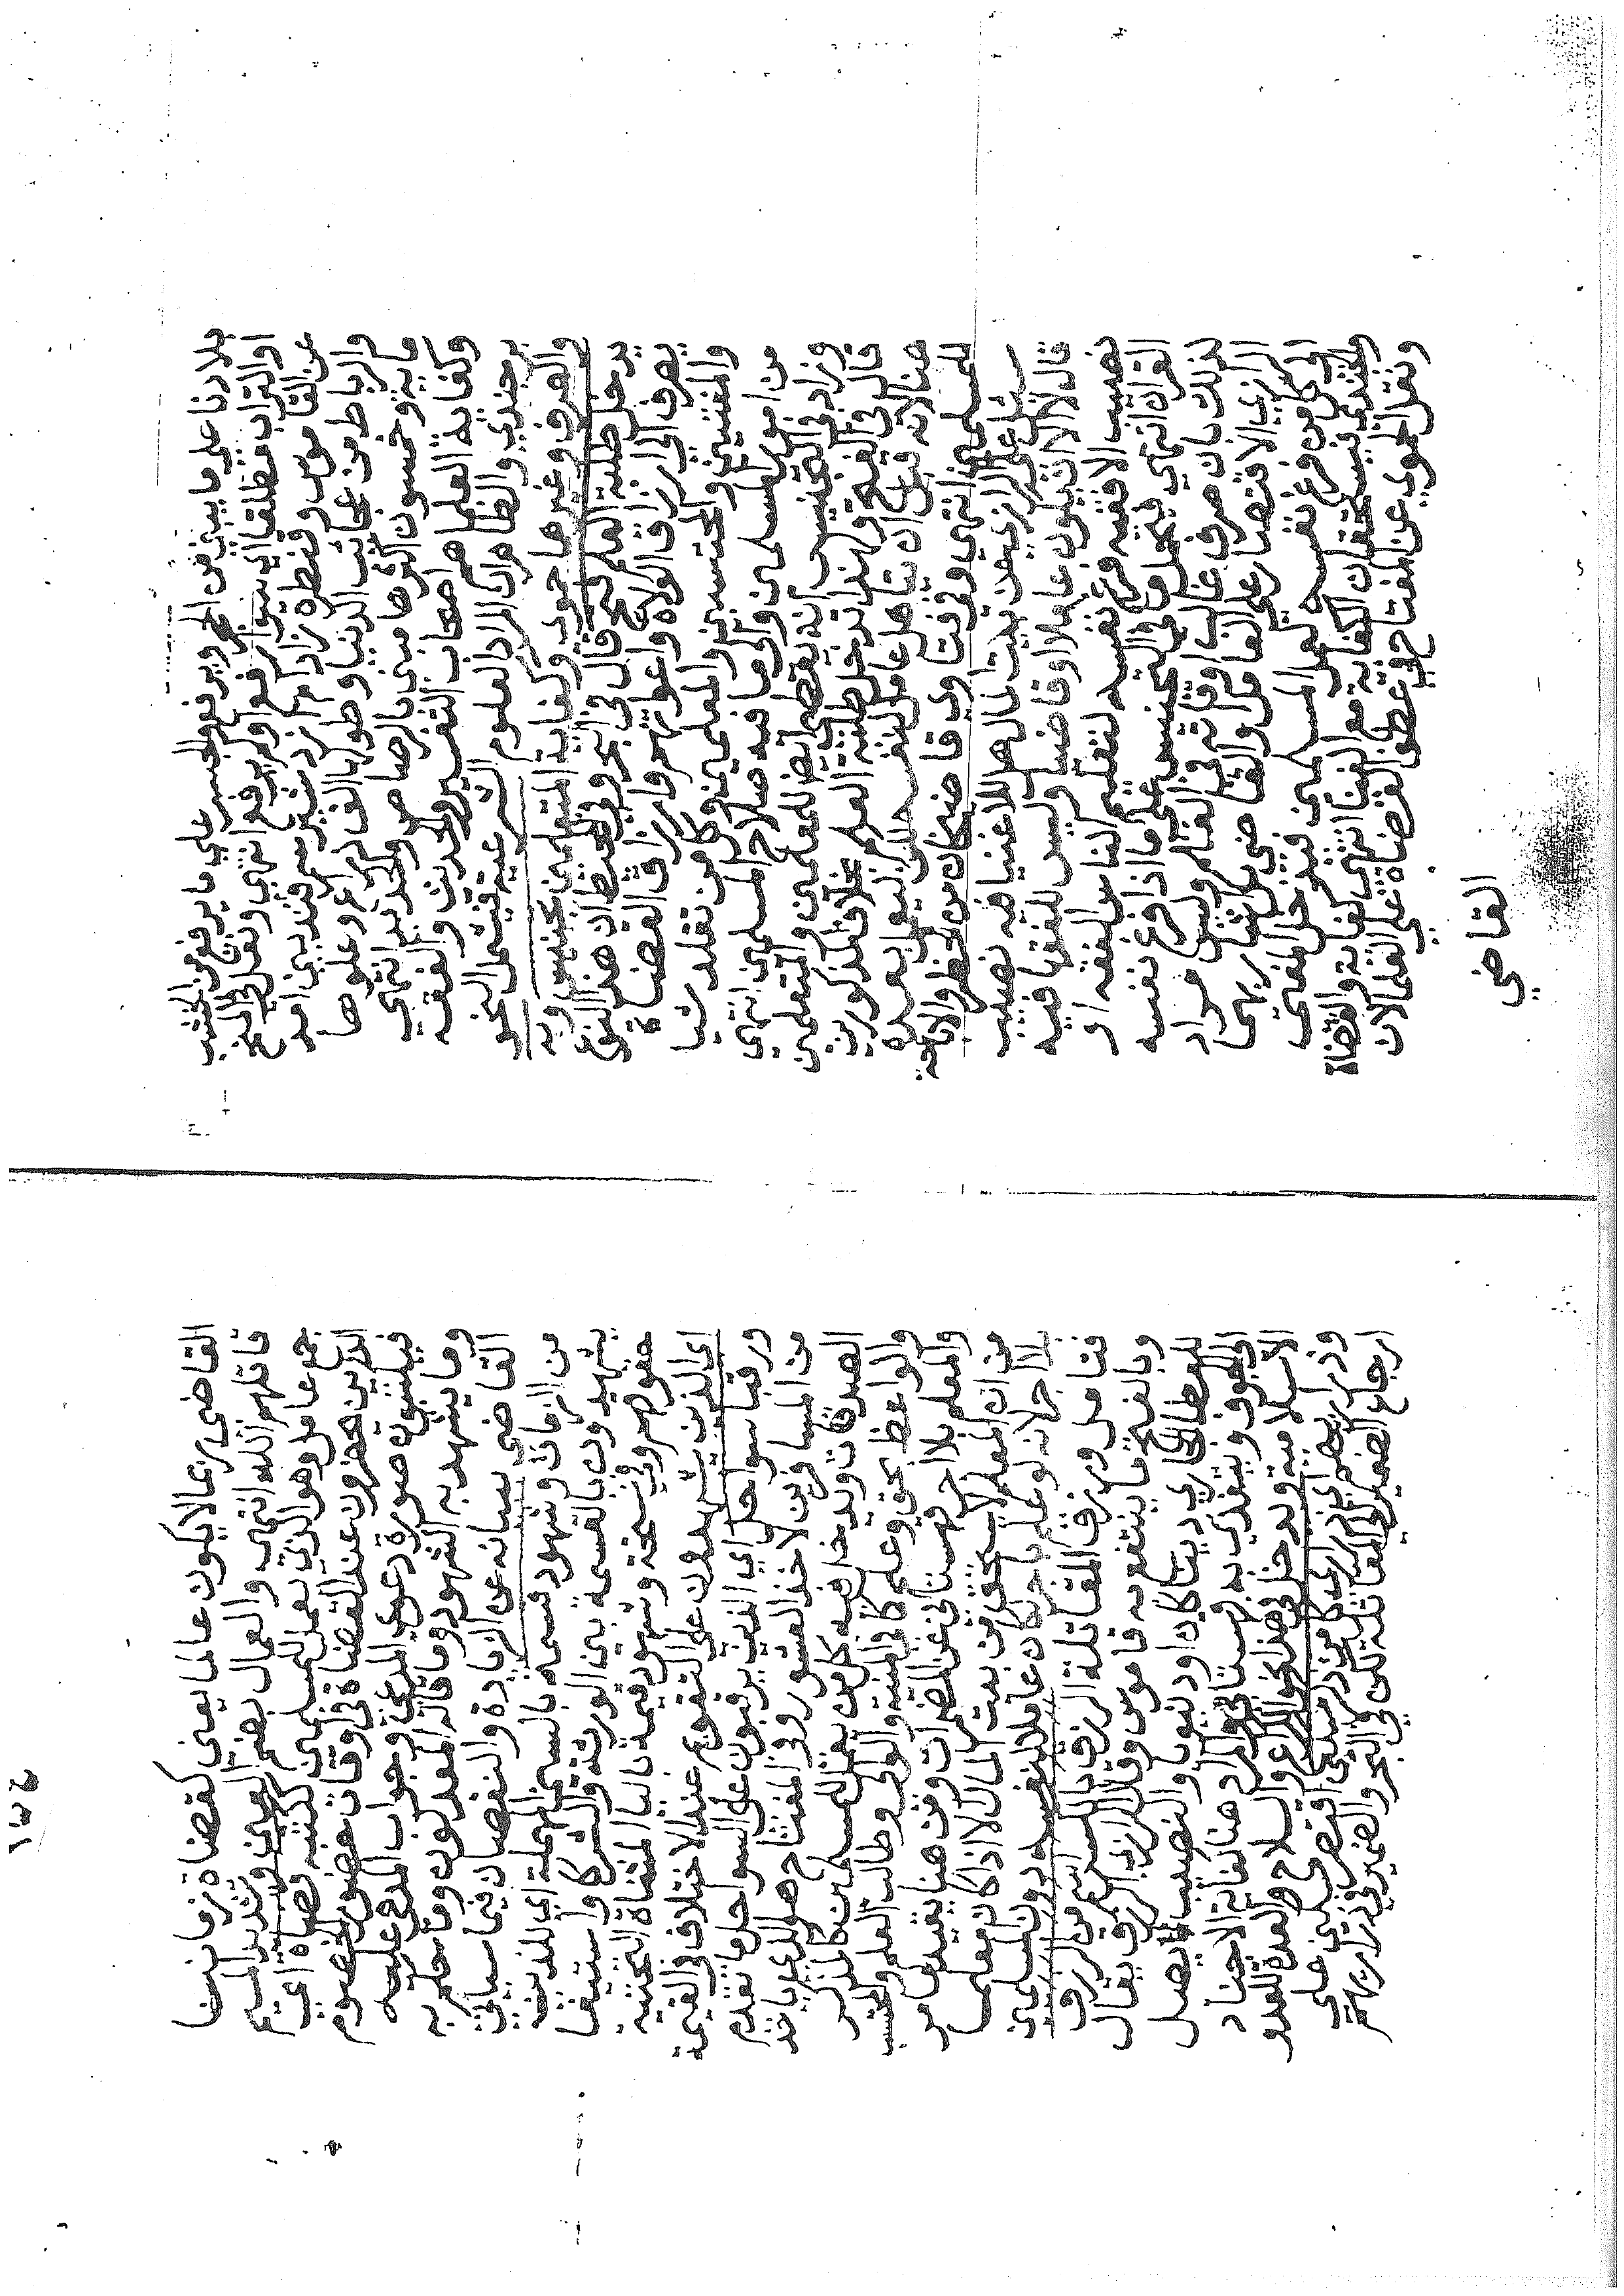 بلادنا علي ما يبني من الحجر ويرفع والجسر علي ما يرفع من الخشب
او التراب مطلقا اي سوا رفع او لم يرفع انتهي ونقل في المنح
عن القاموس وقنطره زادام ازدشير بسمرقند بين امد
والرباط من عجائب الدنيا وطولها الف ذراع وعلوها
ماية وخمسون اكثرها مبني بالرصاص والحديد انتهي
وكفاية العلما هم اصحاب التفسير والحديث والفقه
برجندي والظاهر ان المراد العلوم الشرعية فيشمل النحو
والصرف وغيرها حموي وكفاية المتعلمين تجنيس وبه
يدخل طلبة العلم فتح قال في البحر وفي المحيط ان هذا النوع
يصرف الي ارزاق الولاة واعوانهم وارزاق القضاة
والمفتيين والمحتسبين والمعلمين وكل من تقلد شيا
من امور المسلمين والي ما فيه صلاح المسلمين انتهي
وزاد في التجنيس انه يعطي ايضا للمعلمين والمتعلمين
قال في الفتح وبهذا تدخل طلبة العلم بخلاف المذكورين
هنا لانه قبل ان يتاهل عامل لنفسه لكن ليعمل بعده
للمسلمين انتهي وفي فتاوي قاضيخان من الحظر والاباحة
سئل علي الرازي عن بيت المال هل للاغنيا فيه نصيب
قال لا الا ان يكون عاملا او قاضيا وليس للفقها فيه
نصيب الا فقيه فرغ نفسه لتعليم الناس الفقه او
القران انتهي فيحمل ما في التجنيس علي ما اذا فرغ نفسه
لذلك بان صرف غالب اوقاته في العلم وليس مراد
الرازي الاقتصار علي العامل والقاضي بل اشار بهما
الي كل من فرغ نفسه لعمل المسلمين فيدخل المفتي
والجندي فيستحقان الكفاية مع الغنا انتهي كفاية والقضاة
ونقل الحموي عن المفتاح في عطف القضاة علي العلما لان
القاضي
القاضي ربما لا يكون عالما يعني كقضاة زماننا
قاتلهم الله انتهي والعمال بضم العين وتشديد الميم
جمع عامل وهو الذي يعمل للمسلمين ككتبة قضاة اعني
الذين يحضرون عند القضاة في اوقات حضور الخصوم
فيكتبون صورة دعوي المدعي وجواب المدعي عليه
وما يشهد به الشهود وما قاله المعدلون وما حكم به
القاضي عن الزيادة والنقصان فيما سياتي
من الزمان وشهود قسمه بالسين المهملة اي الذين
يشهدون بالقسمة بين الورثة والشركا واستيفا
حقوقهم وفي نسخة وشهود قيمة باليا المثناة التحتية
اي الذين يشهدون علي التقويم عند الاختلاف في القيمة
ورقبا سواحل اي الذين يرقبون علي السواحل ما تقدم
من المسافرين لاخذ العشور وفي المفتاح هو الذي ياخذ
الصدقات ويدخل فيه كل من يعمل للمسلمين كالمذكر
والواعظ بحق وعلم كما في المنية والوالي وطالب العلم والمحتسب
والمعلم بلا اجر قهستاني عن المضمرات ومن هنا يفيد ما مر
من ان المعلم لا يستحق من بيت المال الا اذا كان معلما
بلا اجر لانه لو علم باجر كان عاملا لنفسه دون المسلمين
فتامل ورزق المقاتلة الرزق بالكسر اسم من الرزق
وبالفتح ما ينتفع به قاموس وقيل الرزق يقال
للعطا الجاري دينيا كان او دنيويا وللنصيب لما يصل
الي الجوف ويتغذي به قهستاني والمراد هنا كفاية الاجناد
الاسلامية ويدخل في هذا نحو الكراع والسلاح والعدة للعدو
وذراريهم اي ذراري كل من ذكر مسكين اقتصر العيني علي
ارجاع الضمير الي المقاتلة لكن في البحر والضمير في ذراريهم